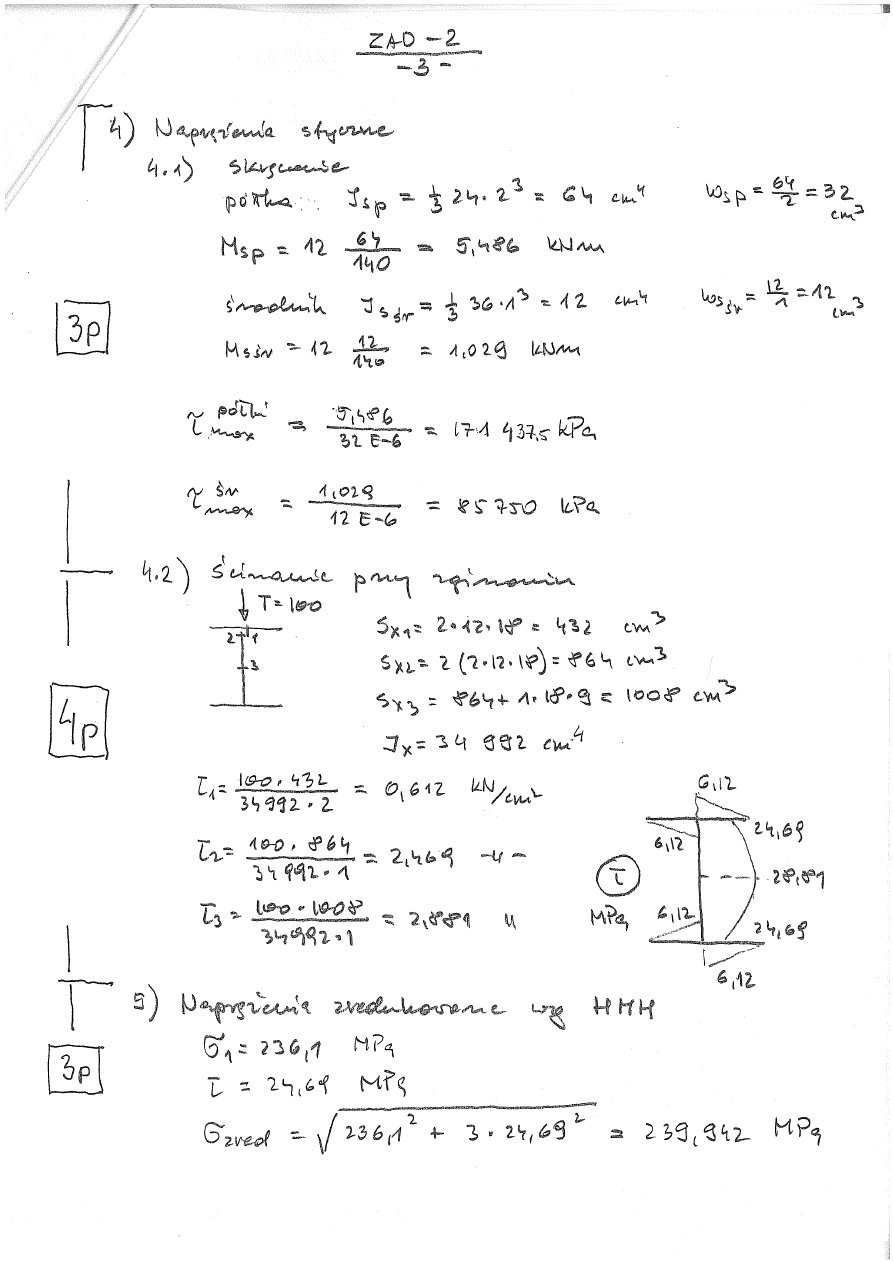 ZAD - 2
- 3 -
4) Naprężenia styczne
4.1) Skręcanie
półka: Jsp = 1/3 24 · 2³ = 64 cm⁴ Wsp = 64/2 = 32 cm³
Msp = 12 64/140 = 5,486 kNm
średnik Jsśr = 1/3 36 · 1³ = 12 cm⁴ Wsśr = 12/1 = 12 cm³
3p
Msśr = 12 12/140 = 1,029 kNm
τ półki max = 5,486 / 32 E-6 = 171 437,5 kPa
τ śr max = 1,029 / 12 E-6 = 85 750 kPa
4.2) Ścinanie przy zginaniu
T = 100
2 1
3
Sx1 = 2·12·18 = 432 cm³
Sx2 = 2 (2·12·18) = 864 cm³
Sx3 = 864 + 1·18·9 = 1008 cm³
4p
Jx = 34 992 cm⁴
τ1 = 100 · 432 / 34992 · 2 = 0,612 kN/cm²
τ2 = 100 · 864 / 34992 · 1 = 2,469 -u-
τ3 = 100 · 1008 / 34992 · 1 = 2,881 u
6,12
6,12 24,69
τ 28,81
MPa 6,12 24,69
6,12
5) Naprężenia zredukowane wg HMH
σ1 = 236,1 MPa
3p
τ = 24,69 MPa
σzred = √(236,1² + 3 · 24,69²) = 239,942 MPa